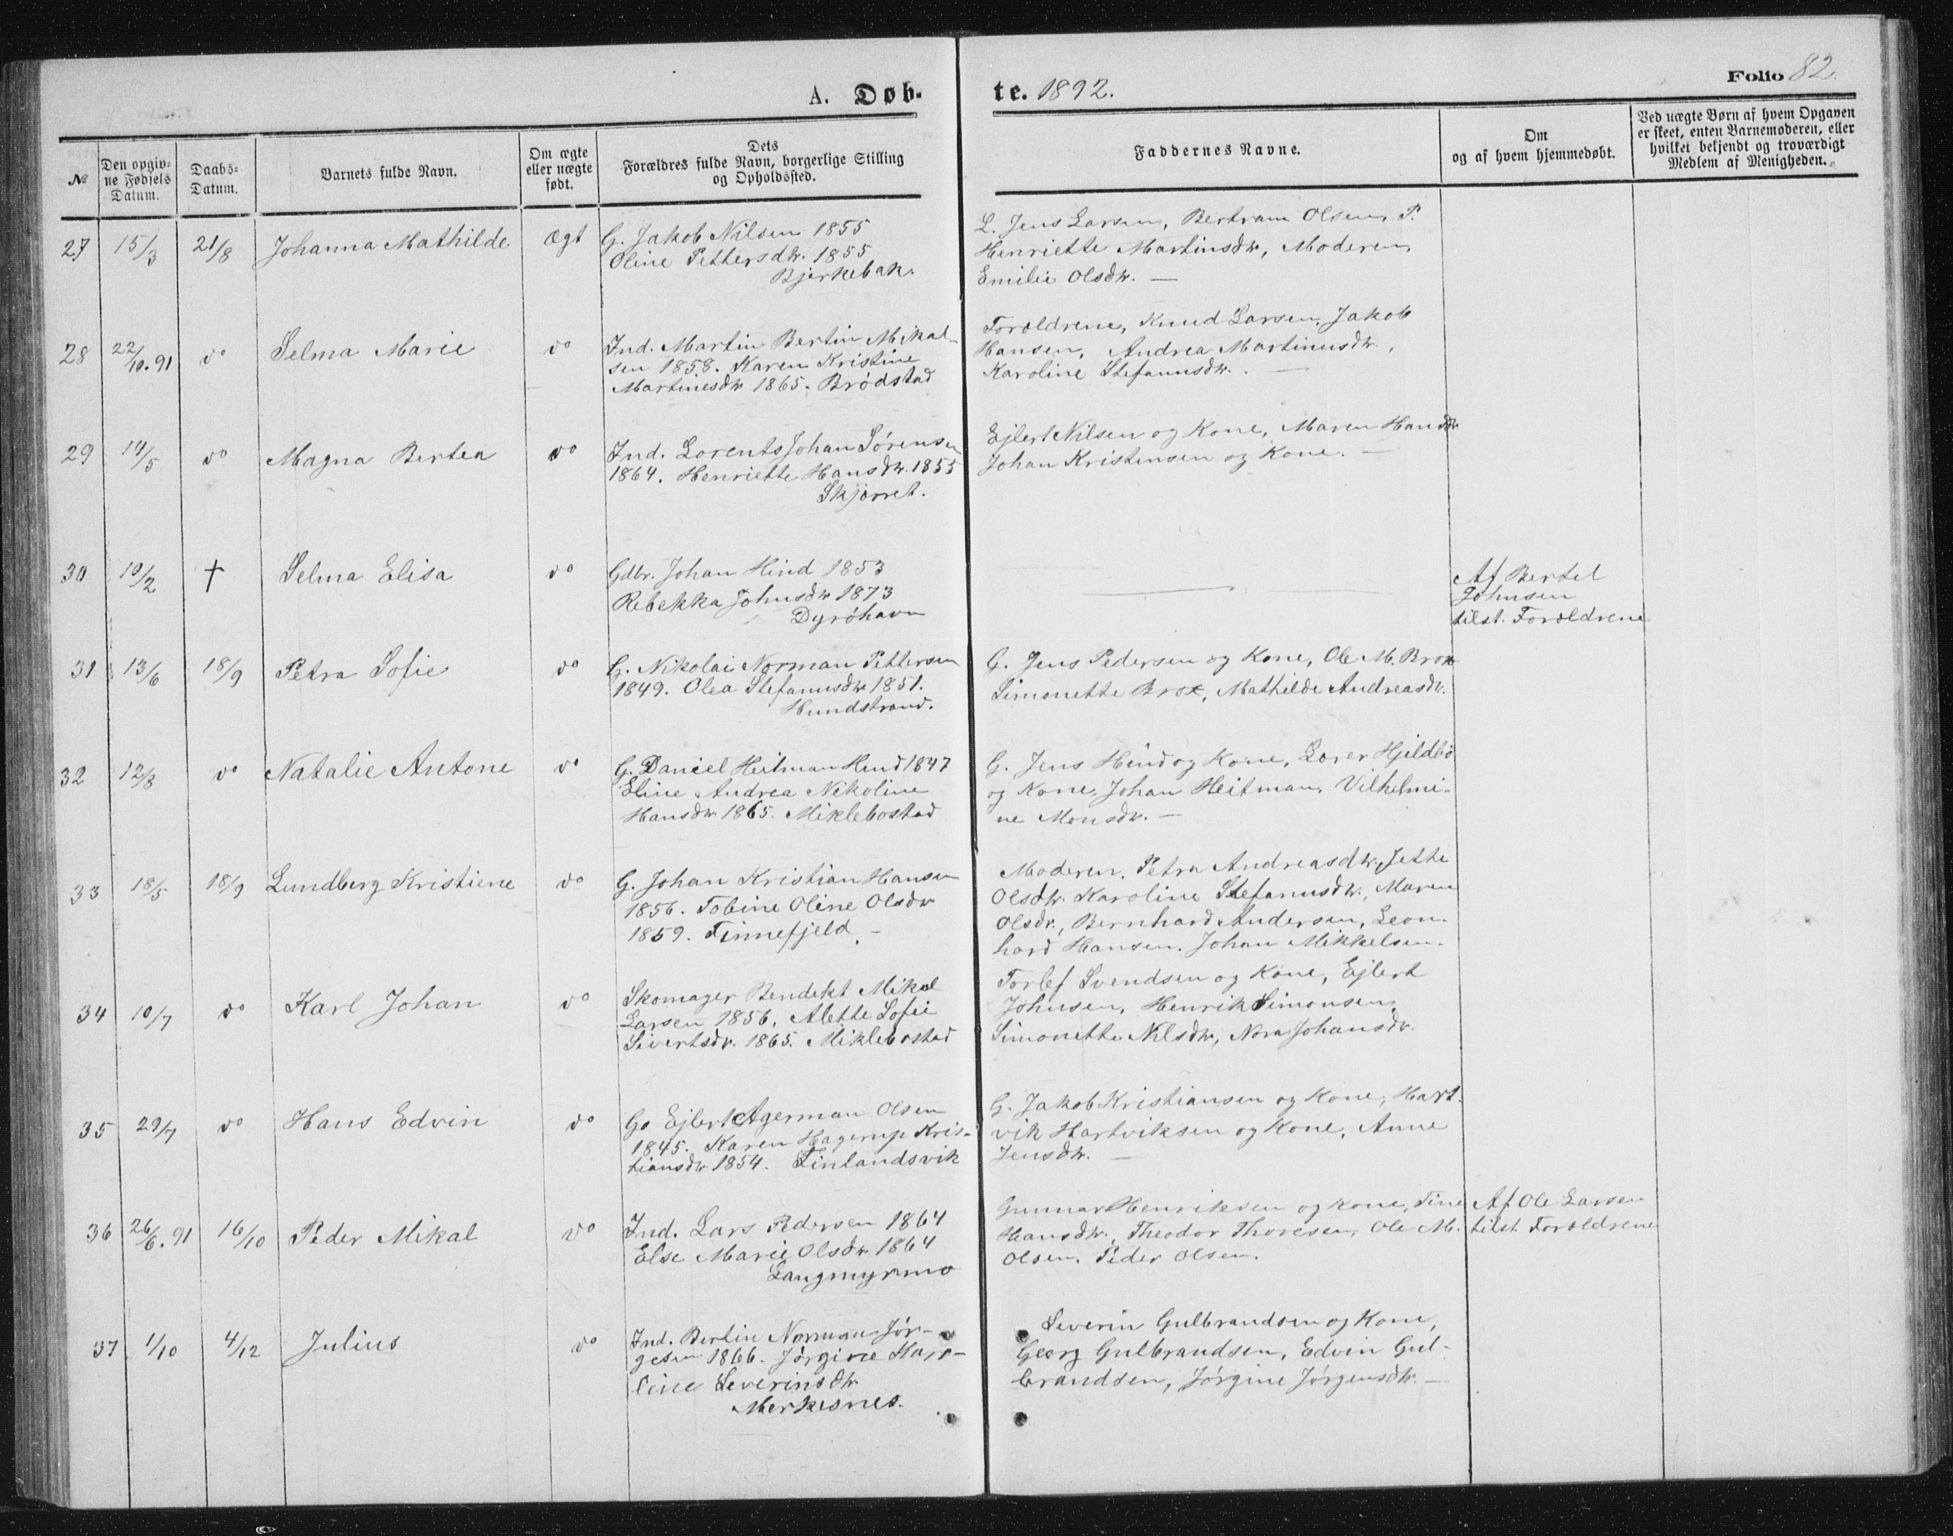 A. Døb-
te. 1892.
Folio 82.
№
Den opgiv-
ne Fødsels
Datum.
Daabs-
Datum.
Barnets fulde Navn.
Om ægte
eller uægte
født.
Dets
Forældres fulde Navn, borgerlige Stilling
og Opholdssted.
Faddernes Navne.
Om
og af hvem hjemmedøbt.
Ved uægte Børn af hvem Opgaven
er skeet, enten Barnemoderen, eller
hvilket bekjendt og troværdigt
Medlem af Menigheden.
27 15/3 21/8 Johanna Mathilde Ægt
G. Jakob Nilsen 1855
Oline Pettersdtr. 1855
Bjerkebak.
L. Jens Larsen, Bertram Olsen, P.
Henriette Martinsdtr, Moderen,
Emilie Olsdtr. —
28 22/10.91 do Selma Marie do
Ind. Martin Bertin Mikal-
sen 1858. Karen Kristine
Martinesdtr 1865. Brødstad
Forældrene, Knud Larsen, Jakob
Hansen, Andrea Martinusdtr.,
Karoline Stefanusdtr. —
29 14/5 do Magna Bertea do
Ind. Lorents Johan Sørensen
1864. Henriette Hansdtr. 1855
Skjørret.
Ejlert Nilsen og Kone, Maren Hansdtr
Johan Kristensen og Kone. —
30 10/2 † Selma Elisa do
Gdbr. Johan Hind 1853
Rebekka Johnsdtr 1873
Dyrøhavn
—
Af Bertel
Johnsen
tilst. Forældrene
31 13/6 18/9 Petra Sofie do
G. Nikolai Norman Pettersen
1849. Olea Stefanusdtr 1851.
Hundstrand.
G. Jens Pedersen og Kone, Ole M. Brox
Simonette Brox, Mathilde Andreasdtr.
32 12/3 do Natalie Antone do
G. Daniel Heitman Hind 1847
Eline Andrea Nikoline
Hansdtr 1865. Miklebostad
G. Jens Hind og Kone, Lærer Hjeldbø
og Kone, Johan Heitman, Vilhelmi-
ne Monsdtr. —
33 18/5 18/9 Lundberg Kristiene do
G. Johan Kristian Hansen
1856. Tobine Oline Olsdtr
1859. Finnefjeld. —
Moderen, Petra Andreasdtr, Jette
Olsdtr. Karoline Stefanusdtr, Maren
Olsdtr., Bernhard Andersen, Leon-
hard Hansen. Johan Mikkelsen.
34 10/7 do Karl Johan do
Skomager Bendekt Mikal
Larsen 1856, Alette Sofie
Sivertsdtr. 1865. Miklebostad
Torlef Svendsen og Kone, Ejlert
Johnsen, Henrik Simonsen,
Simonette Nilsdtr, Nora Johansdtr.
35 29/7 do Hans Edvin do
Go Ejlert Agerman Olsen
1845. Karen Hagerup Kris-
tiansdtr 1854. Finlandsvik
G. Jakob Kristiansen og Kone, Hart-
vik Hartviksen og Kone, Anne
Jensdtr. —
36 26/6.91 16/10 Peder Mikal do
Ind. Lars Pedersen 1864
Else Marie Olsdtr 1864
Langmyrmo
Gunnar Henriksen og Kone, Tine
Hansdtr., Theodor Thoresen, Ole M.
Olsen, Peder Olsen.
Af Ole Larsen
tilst. Forældrene
37 1/10 4/12 Julius do
Ind. Bertin Norman Jør-
gesen 1866. Jørgine Hap-
line Severinsdtr
Merkesnes.
Severin Gulbrandsen og Kone,
Georg Gulbrandsen, Edvin Gul-
brandsen, Jørgine Jørgensdtr. —